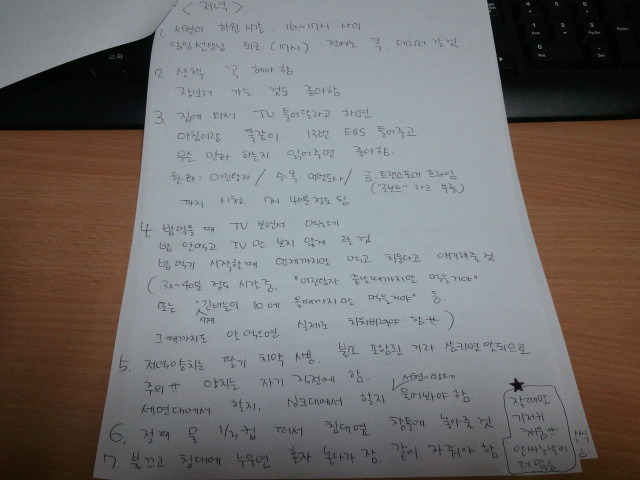 <저녁>
1. 서현이 하원시간 : 16~17시 사이
담임선생님 퇴근 (17시) 전에는 꼭 데리러 갈 것
2. 산책 꼭 해야 함
장보러 가는 것도 좋아함
3. 집에 와서 TV 틀어달라고 하면
아침이랑 똑같이 13번 EBS 틀어주고
무슨 만화 하는지 읽어주면 좋아함.
월.화 : / 수.목 : / 금 : 트랜스포머 프라임
("로보트" 라고 부름)
까지 시청. 7시 40분정도 됨
4. 밥먹을 때 TV 보면서 먹는데
밥 안먹고 TV 만 보지 않게 할 것
밥먹기 시작할때 언제까지만 먹고 치운다고 얘기해줄 것
(30~40분 정도 시간 줌. 끝날때까지만 먹을거야"
또는 "긴바늘이 10에 올때까지만 먹을거야" 등
시계
그때까지도 안먹으면 실제로 치워버려야 함 )
5. 저녁양치는 딸기 치약 사용. 불소 포함된 거라 삼키면 안되므로
주의 양치는 자기 직전에 함.
서현이한테
세면대에서 할지, 싱크대에서 할지 물어봐야 함
6. 잘때 물 1/3컵 떠서 침대옆 창틀에 놓아줄 것
7. 불끄고 침대에 누우면 혼자 놀다가 잠 같이 자줘야 함
★
잘때만
기저귀
채움